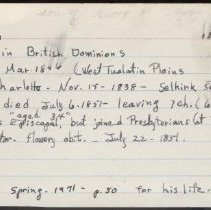 in British Dominions
Mar. 1846 (West Tualatin Plains
Charlotte - Nov. 15 - 1838 - Selkirk S
died July 6, 1851 - leaving 7 ch. (6
"aged 34"
Episcopal, but joined Presbyterians at
tor. Flowery obit. - July 22 - 1851.
Spring - 1971 - p. 50 for his life